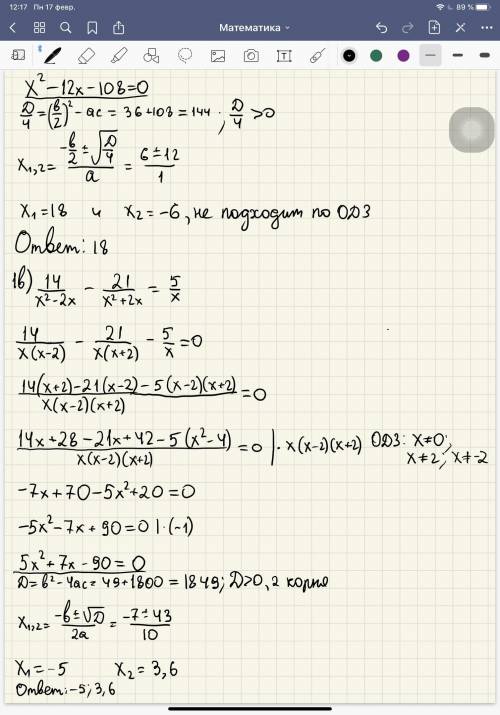 12:17 Пн 17 февр. 89 %
Математика
x² – 12x – 108 = 0
D/4 = (b/2)² – ac = 36 + 108 = 144 ; D/4 > 0
x₁,₂ = (–b/2 ± √(D/4))/a = (6 ± 12)/1
x₁ = 18 и x₂ = –6, не подходит по ОДЗ
Ответ: 18
1в) 14/(x² – 2x) – 21/(x² + 2x) = 5/x
14/(x(x–2)) – 21/(x(x+2)) – 5/x = 0
(14(x+2) – 21(x–2) – 5(x–2)(x+2))/(x(x–2)(x+2)) = 0
(14x + 28 – 21x + 42 – 5(x² – 4))/(x(x–2)(x+2)) = 0 | · x(x–2)(x+2) ОДЗ: x ≠ 0;
x ≠ 2; x ≠ –2
–7x + 70 – 5x² + 20 = 0
–5x² – 7x + 90 = 0 | · (–1)
5x² + 7x – 90 = 0
D = b² – 4ac = 49 + 1800 = 1849; D > 0, 2 корня
x₁,₂ = (–b ± √D)/2a = (–7 ± 43)/10
x₁ = –5 x₂ = 3,6
Ответ: –5; 3,6